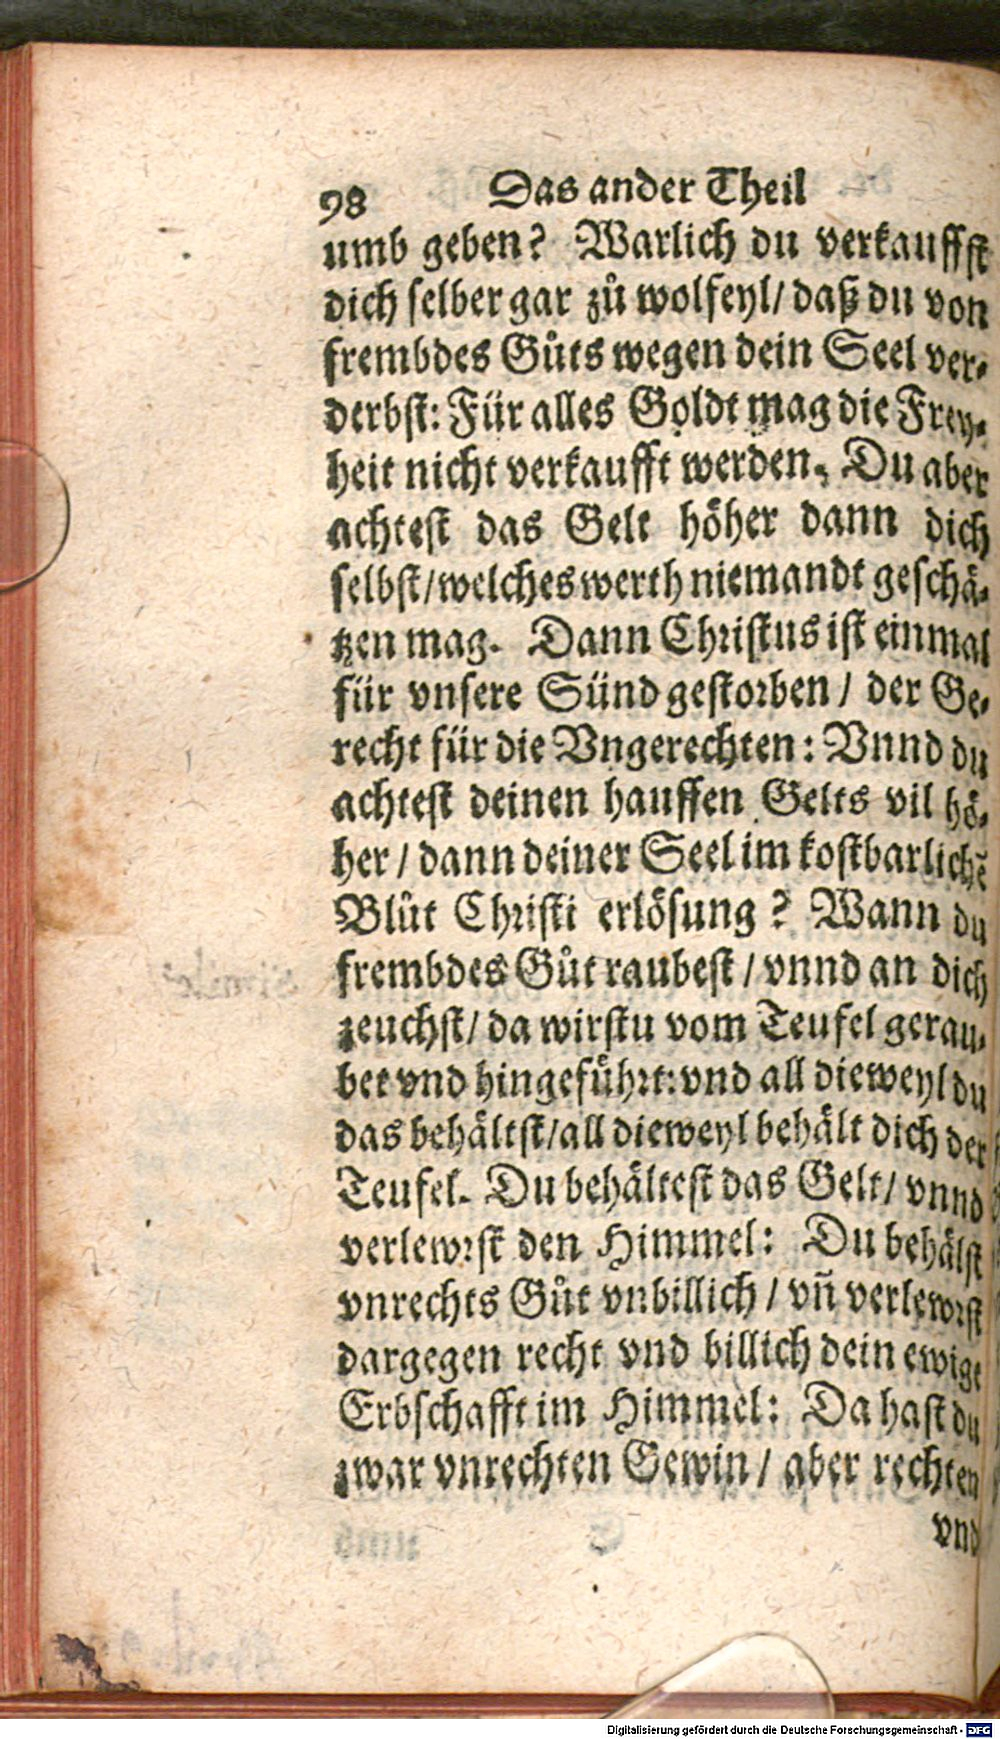 98 Das ander Theil
umb geben? Warlich du verkauffst
dich selber gar zů wolfeyl / daß du von
frembdes Gůts wegen dein Seel ver-
derbst: Für alles Goldt mag die Frey-
heit nicht verkaufft werden. Du aber
achtest das Gelt höher dann dich
selbst / welches werth niemandt geschä-
tzen mag. Dann Christus ist einmal
für vnsere Sünd gestorben / der Ge-
recht für die Vngerechten: Vnnd du
achtest deinen hauffen Gelts vil hö-
her / dann deiner Seel im kostbarlichẽ
Blůt Christi erlösung? Wann du
frembdes Gůt raubest / vnnd an dich
zeuchst / da wirstu vom Teufel gerau-
bet vnd hingeführt: vnd all dieweyl du
das behältst / all dieweyl behält dich der
Teufel. Du behältest das Gelt / vnnd
verlewrst den Himmel: Du behälst
vnrechts Gůt vnbillich / vñ verlewrst
dargegen recht vnd billich dein ewige
Erbschafft im Himmel: Da hast du
zwar vnrechten Gewin / aber rechten
vnd
Digitalisierung gefördert durch die Deutsche Forschungsgemeinschaft - DFG